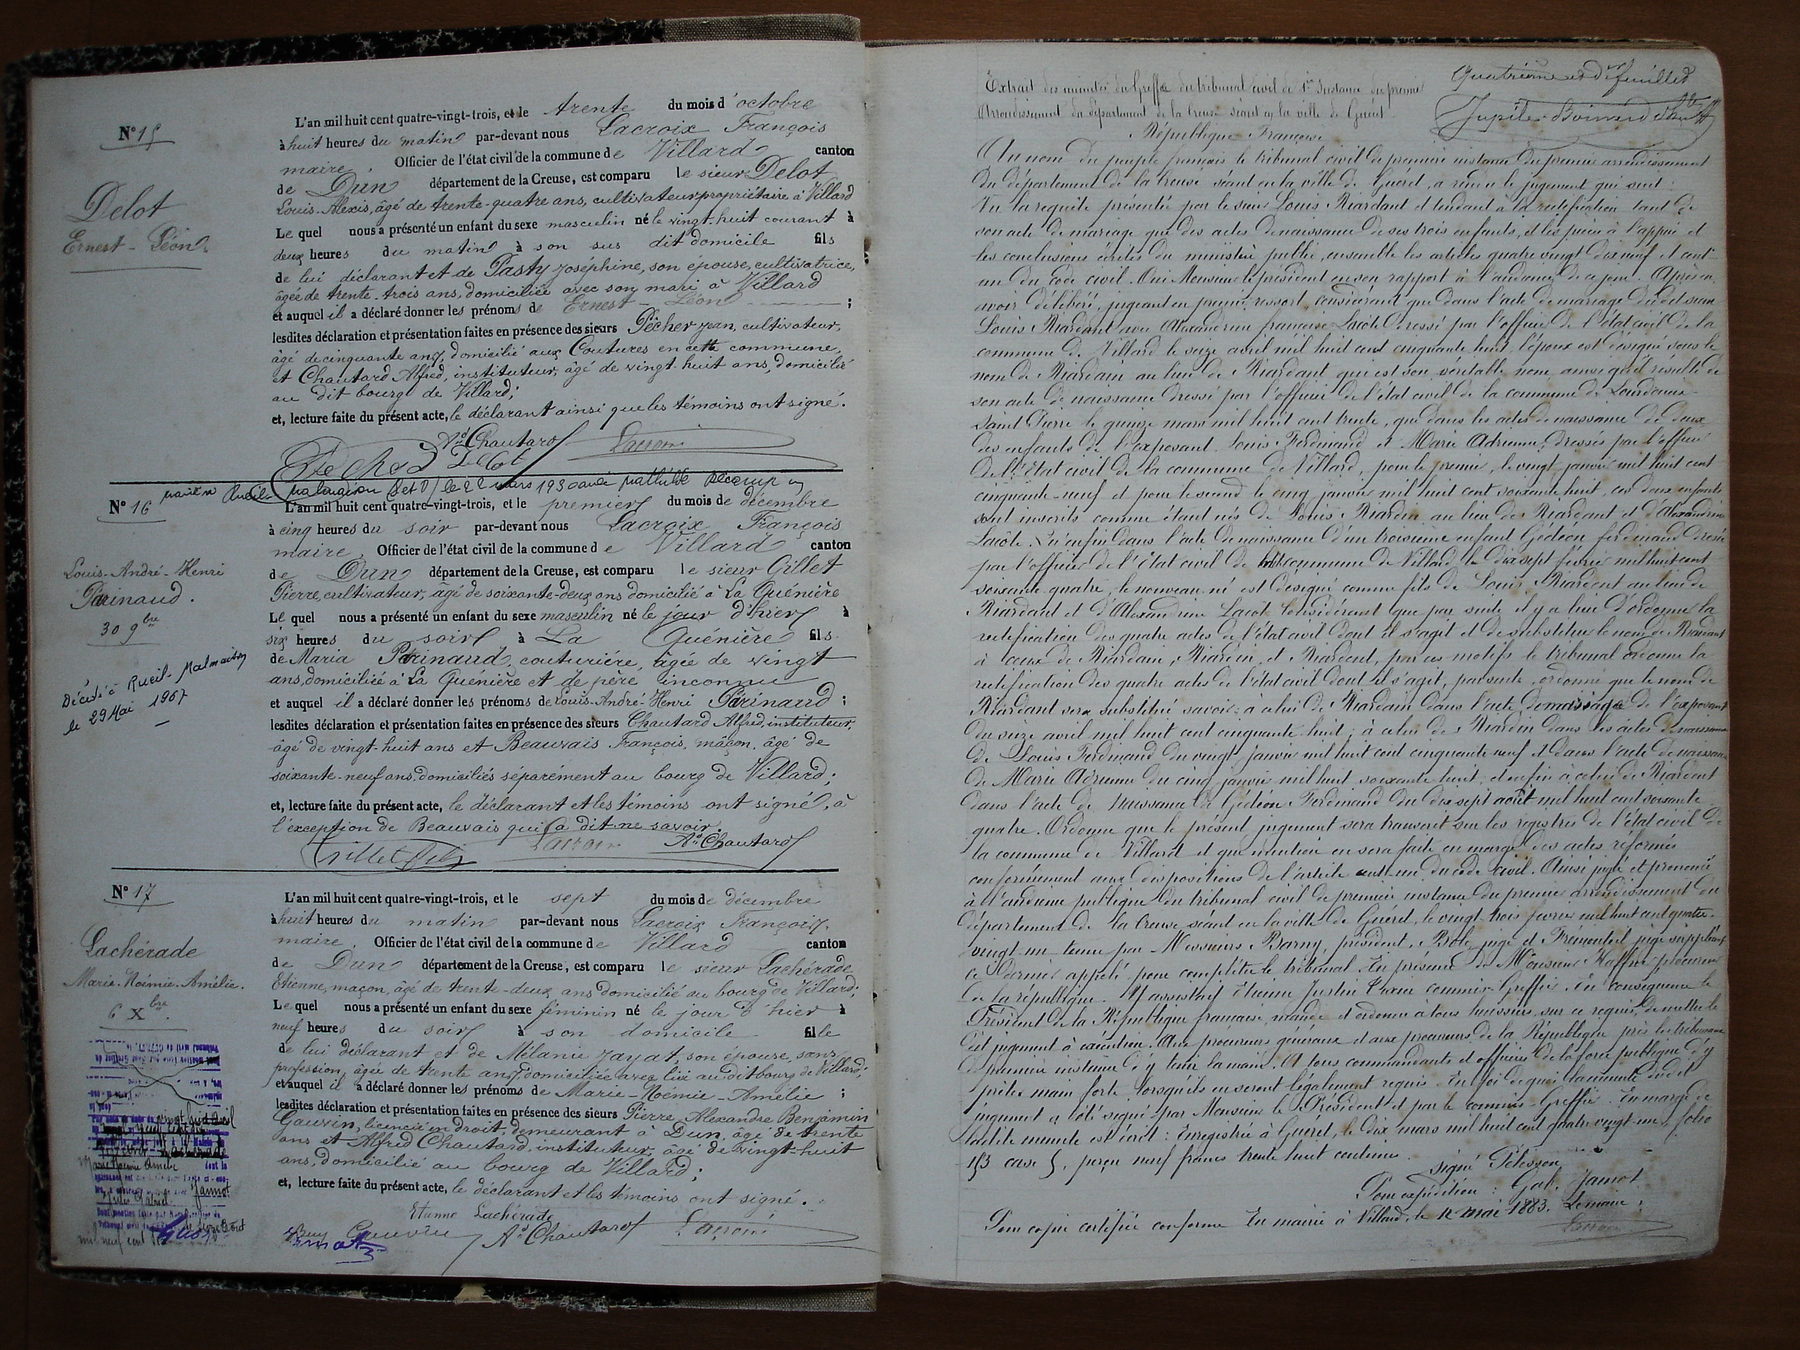 N° 15
Delot
Ernest-Léon
L'an mil huit cent quatre-vingt-trois, et le trente du mois d'octobre
à huit heures du matin par-devant nous Lacroix François
maire Officier de l'état civil de la commune de Villard canton
de Dun département de la Creuse, est comparu le sieur Delot
Louis-Alexis, âgé de trente-quatre ans, cultivateur propriétaire à Villard
Le quel nous a présenté un enfant du sexe masculin né le vingt-huit courant à
deux heures du matin à son sus dit domicile fils
de lui déclarant et de Pasty Joséphine, son épouse, cultivatrice,
âgée de trente-trois ans, domiciliée avec son mari à Villard
et auquel il a déclaré donner les prénoms de Ernest-Léon ;
lesdites déclaration et présentation faites en présence des sieurs Pécher Jean, cultivateur,
âgé de cinquante ans, domicilié aux Coutures en cette commune,
et Chautard Alfred, instituteur, âgé de vingt-huit ans, domicilié
au dit bourg de Villard;
et, lecture faite du présent acte, le déclarant ainsi que les témoins ont signé.
Ad Chautard Lacroix
Delot
N° 16
Louis-André-Henri
Parinaud.
30 9bre
Décédé à Rueil-Malmaison
le 29 Mai 1967
L'an mil huit cent quatre-vingt-trois, et le premier du mois de décembre
à cinq heures du soir par-devant nous Lacroix François
maire. Officier de l'état civil de la commune de Villard canton
de Dun département de la Creuse, est comparu le sieur Gillet
Pierre, cultivateur, âgé de soixante-deux ans domicilié à La Quenière
Le quel nous a présenté un enfant du sexe masculin né le jour d'hier à
six heures du soir à La Quénière fils
de Maria Parinaud, couturière, âgée de vingt
ans, domiciliée à La Quenière et de père inconnu
et auquel il a déclaré donner les prénoms de Louis-André-Henri Parinaud ;
lesdites déclaration et présentation faites en présence des sieurs Chautard Alfred, instituteur,
âgé de vingt-huit ans et Beauvais François, mâçon, âgé de
soixante-neuf ans, domiciliés séparément au bourg de Villard;
et, lecture faite du présent acte, le déclarant et les témoins ont signé, à
l'exception de Beauvais qui l'a dit ne savoir.
Gillet Lacroix Ad Chautard
N° 17
Lachérade
Marie-Noémie-Amélie.
6 Xbre.
L'an mil huit cent quatre-vingt-trois, et le sept du mois de décembre
à huit heures du matin par-devant nous Lacroix François,
maire. Officier de l'état civil de la commune de Villard canton
de Dun département de la Creuse, est comparu le sieur Lachérade
Etienne, maçon, âgé de trente-deux ans domicilié au bourg de Villard;
Le quel nous a présenté un enfant du sexe féminin né le jour d'hier à
neuf heures du soir à son domicile fille
de lui déclarant et de Mélanie Jayat, son épouse, sans
profession, âgée de trente ans, domiciliée avec lui au dit bourg de Villard;
et auquel il a déclaré donner les prénoms de Marie-Noémie-Amélie ;
lesdites déclaration et présentation faites en présence des sieurs Pierre Alexandre Benjamin
Gauvin, licencié en droit, demeurant à Dun, âgé de trente
ans et Alfred Chautard, instituteur, âgé de vingt-huit
ans, domicilié au bourg de Villard;
et, lecture faite du présent acte, le déclarant et les témoins ont signé.
Etienne Lachérade
Gauvin Ad Chautard Lacroix
Quatrième et dr feuillet
Extrait des minutes du Greffe du tribunal civil de 1re Instance du premier
Arrondissement du département de la Creuse séant en la ville de Guéret
République Française
Au nom du peuple français le tribunal civil de première instance du premier arrondissement
du département de la Creuse séant en la ville de Guéret, a rendu le jugement qui suit :
Vu la requête présentée par le sieur Louis Riardant et tendant à la rectification tant de
son acte de mariage que des actes de naissance de ses trois enfants, et les pièces à l'appui et
les conclusions écrites du ministère public, ensemble les articles quatre vingt dix neuf et cent
un du code civil. Oui Monsieur le président en son rapport à l'audience de ce jour. Après en
avoir délibéré, jugeant en premier ressort, considérant que dans l'acte de mariage du dit sieur
Louis Riardant avec Alexandrine françoise Lacôte dressé par l'officier de l'état civil de la
commune de Villard le seize avril mil huit cent cinquante huit, l'époux est désigné sous le
nom de Riardain au lieu de Riardant qui est son véritable nom ainsi qu'il résulte de
son acte de naissance dressé par l'officier de l'état civil de la commune de Lourdoueix-
Saint Pierre le quinze mars mil huit cent trente, que dans les actes de naissance de deux
des enfants de l'exposant Louis Ferdinand et Marie Adrienne, dressés par l'officier
de l'état civil de la commune de Villard, pour le premier, le vingt janvier mil huit cent
cinquante-neuf et pour le second le cinq janvier mil huit cent soixante huit, ces deux enfants
sont inscrits comme étant nés de Louis Riardin au lieu de Riardant et d'Alexandrine
Lacôte. Qu'enfin dans l'acte de naissance d'un troisième enfant Gédéon ferdinand dressé
par l'officier de l'état civil de commune de Villard le dix sept février mil huit cent
soixante quatre, le nouveau né est désigné comme fils de Louis Riardent au lieu de
Riardant et d'Alexandrine Lacote. Considérant que par suite il y a lieu d'ordonner la
rectification des quatre actes de l'état civil dont il s'agit et de substituer le nom de Riardant
à ceux de Riardain, Riardin et Riardent, par ces motifs le tribunal ordonne la
rectification des quatre actes de l'état civil dont il s'agit, par suite, ordonne que le nom de
Riardant sera substitué savoir : à celui de Riardain dans l'acte de mariage de l'exposant
du seize avril mil huit cent cinquante huit; à celui de Riardin dans les actes de naissance
de Louis Ferdinand du vingt janvier mil huit cent cinquante neuf et dans l'acte de naissance
de Marie Adrienne du cinq janvier mil huit soixante huit; et enfin à celui de Riardent
dans l'acte de naissance de Gédéon Ferdinand du dix sept août mil huit cent soixante
quatre. Ordonne que le présent jugement sera transcrit sur les registres de l'état civil de
la commune de Villard et que mention en sera faite en marge des actes réformés
conformément aux dispositions de l'article cent un du code civil. Ainsi jugé et prononcé
à l'audience publique du tribunal civil de première instance du premier arrondissement du
département de la Creuse séant en la ville de Guéret, le vingt trois février mil huit cent quatre-
vingt un tenue par Messieurs Barny, président, juge et juge suppléant
ce dernier appelé pour compléter le tribunal. En présence de Monsieur procureur
de la république. Y assistait Etienne Justin commis-Greffier. En conséquence le
Président de la République française, mande et ordonne à tous huissiers, sur ce requis, de mettre le
dit jugement à exécution. Aux procureurs généraux et aux procureurs de la République près les tribunaux
de première instance d'y tenir la main. A tous commandants et officiers de la force publique d'y
prêter main forte lorsqu'ils en seront légalement requis. En foi de quoi la minute du dit
jugement a été signée par Monsieur le Président et par le commis-Greffier. En marge de
ladite minute est écrit : Enregistré à Guéret, le dix mars mil huit cent quatre-vingt-un folio
case 5, perçu neuf francs trente huit centimes. Signé Pélisson
Pour expédition : Gab. Jannot
Pour copie certifiée conforme En mairie à Villard, le 12 mai 1883. Le maire,
Lacroix